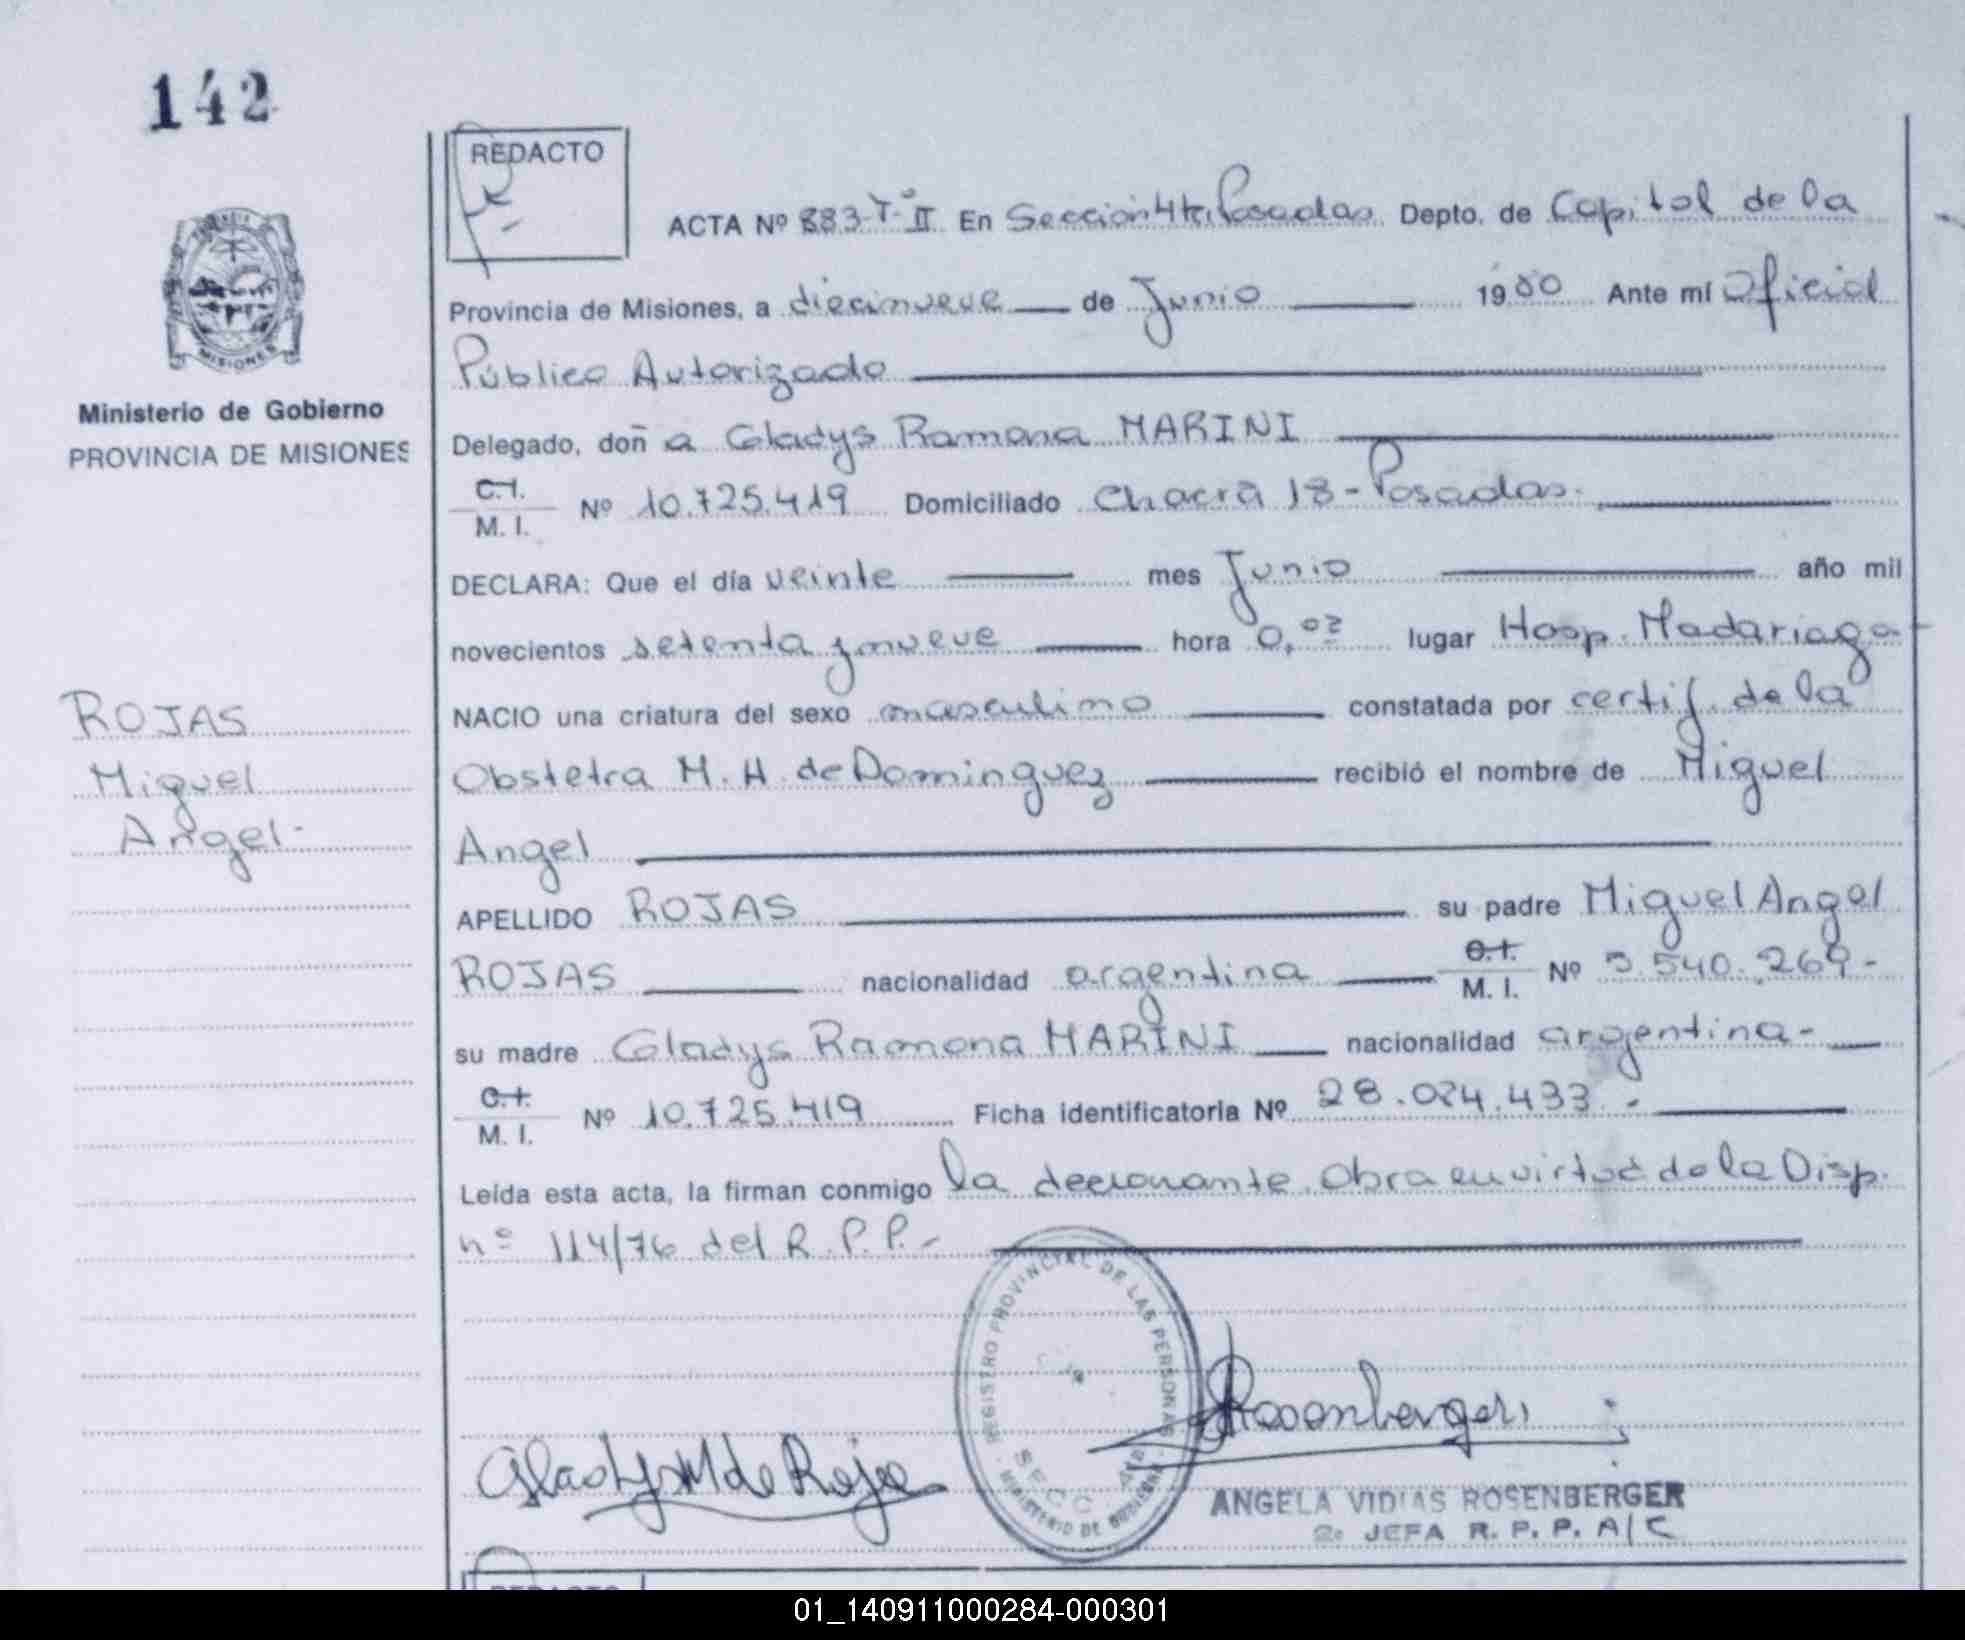 142
REDACTO
ACTA Nº 883-T-II En Sección 4ta. Posadas Depto. de Capital de la
Provincia de Misiones, a diecinueve de Junio 1980 Ante mí Oficial
Público Autorizado
Delegado, doña Gladys Ramona MARINI
C.I. M.I. Nº 10.725.419 Domiciliado Chacra 18 - Posadas.
DECLARA: Que el día veinte mes Junio año mil
novecientos setenta y nueve hora 0,02 lugar Hosp. Madariaga
NACIO una criatura del sexo masculino constatada por certif. de la
Obstetra M. H. de Dominguez recibió el nombre de Miguel
Angel
APELLIDO ROJAS su padre Miguel Angel
ROJAS nacionalidad argentina C.I. M.I. Nº 3.540.269-
su madre Gladys Ramona MARINI nacionalidad argentina-
C.I. M.I. Nº 10.725.419 Ficha identificatoria Nº 28.024.433.-
Leída esta acta, la firman conmigo la declarante. Obra en virtud de la Disp.
nº 114/76 del R.P.P.-
Ministerio de Gobierno
PROVINCIA DE MISIONES
MISIONES
ROJAS
Miguel
Angel-
REGISTRO PROVINCIAL DE LAS PERSONAS
MINISTERIO DE GOBIERNO
SECC
Gladys M de Rojas
Rosenberger
ANGELA VIDIAS ROSENBERGER
2º JEFA R.P.P. A/C
REDACTO
01_140911000284-000301